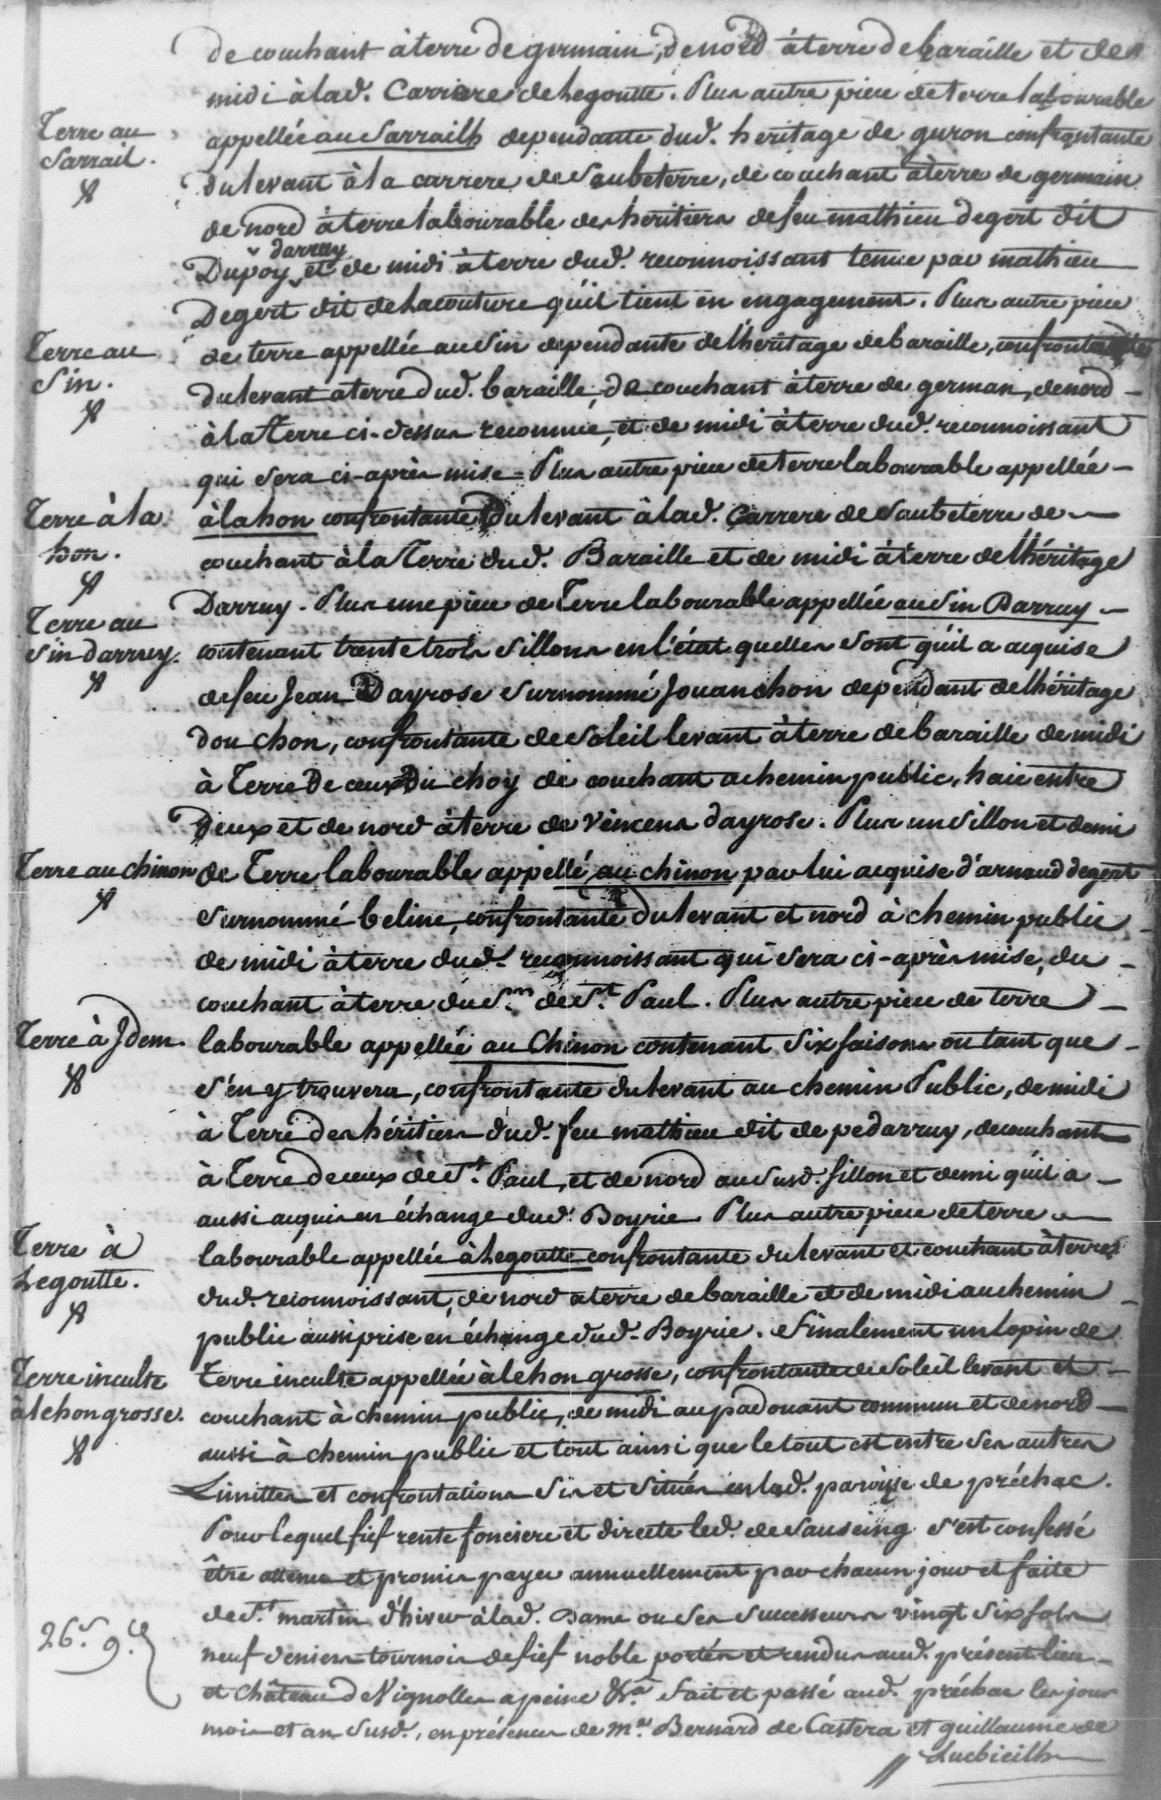 de couchant à terre de germain, de nord à terre de baraille et de
midi à lad. Carrere de Legoutte. Plus autre piece de terre labourable
Terre au
Sarrail.
appellée au Sarrailh dependante dud. heritage de guron confrontante
du levant à la carrere de Saubeterre, de couchant à terre de germain
de nord à terre labourable des heritiers de feu mathieu degert dit
darruy
Dupoy et de midi à terre dud. reconnoissant tenue par mathieu
Degert dit de Lacouture qu'il tient en engagement. Plus autre piece
Terre au
Sin.
de terre appellée au Sin dependante de l'héritage de baraille, confrontante
du levant à terre dud. baraille, de couchant à terre de german, de nord
à la Terre ci-dessus reconnue, et de midi à terre dud. reconnoissant
qui sera ci-après mise = Plus autre piece de terre labourable appellée
Terre à la
hon.
à la hon confrontante du levant à lad. Carrere de Saubeterre de
couchant à la Terre dud. Baraille et de midi à terre de l'héritage
Terre au
Sin darruy.
Darruy. Plus une piece de Terre labourable appellée au Sin Darruy
contenant trente trois Sillons en l'état quelles sont qu'il a acquise
de feu Jean Dayrose Surnommé Jouanchon dependant de l'héritage
dou chon, confrontante de Soleil levant à terre de baraille de midi
à Terre de ceux du choy de couchant a chemin public, haie entre
Deux et de nord à terre de Vincens dayrose. Plus un Sillon et demi
Terre au chinon
de Terre labourable appellé au chinon par lui acquise d'arnaud degert
Surnommé beline, confrontante du levant et nord à chemin public
de midi à terre dud. reconnoissant qui sera ci-après mise, du
couchant à terre du Sr. de St. Paul. Plus autre piece de terre
Terre à Idem.
labourable appellée au Chinon contenant Six faisons ou tant que
s'en y trouvera, confrontante du levant au chemin Public, de midi
à Terre des héritiers dud. feu mathieu dit de pedarruy, de couchant
à Terre de ceux de St. Paul, et de nord au Susd. Sillon et demi qu'il a
aussi acquis en échange dud. Boyrie. Plus autre piece de terre
Terre à
Legoutte.
labourable appellée à Legoutte confrontante du levant et couchant à terres
dud. reconnoissant, de nord a terre de baraille et de midi au chemin
public aussi prise en échange dud. Boyrie. Finalement un lopin de
Terre inculte
à lehongrosse.
Terre inculte appellée à lehon grosse, confrontante de Soleil levant et
couchant à chemin public, de midi au padouant commun et de nord
aussi à chemin public et tout ainsi que le tout est entre ses autres
Limittes et confrontations Sis et Situés en lad. paroisse de préchac.
Pour lequel fief rente fonciere et directe led. de Sauseing s'est confessé
être attenu et promis payer annuellement par chacun jour et faite
de St. martin d'hiver à lad. Dame ou Ses Successeurs vingt Six sols
26 s. 9 d.
neuf deniers tournois de fief noble portés et rendus aud. présent lieu
et Château de Vignolles a peine &ra. fait et passé aud. préchac les jour
mois et an Susd., en présence de me. Bernard de Castera et guillaume de
Lucbieilh